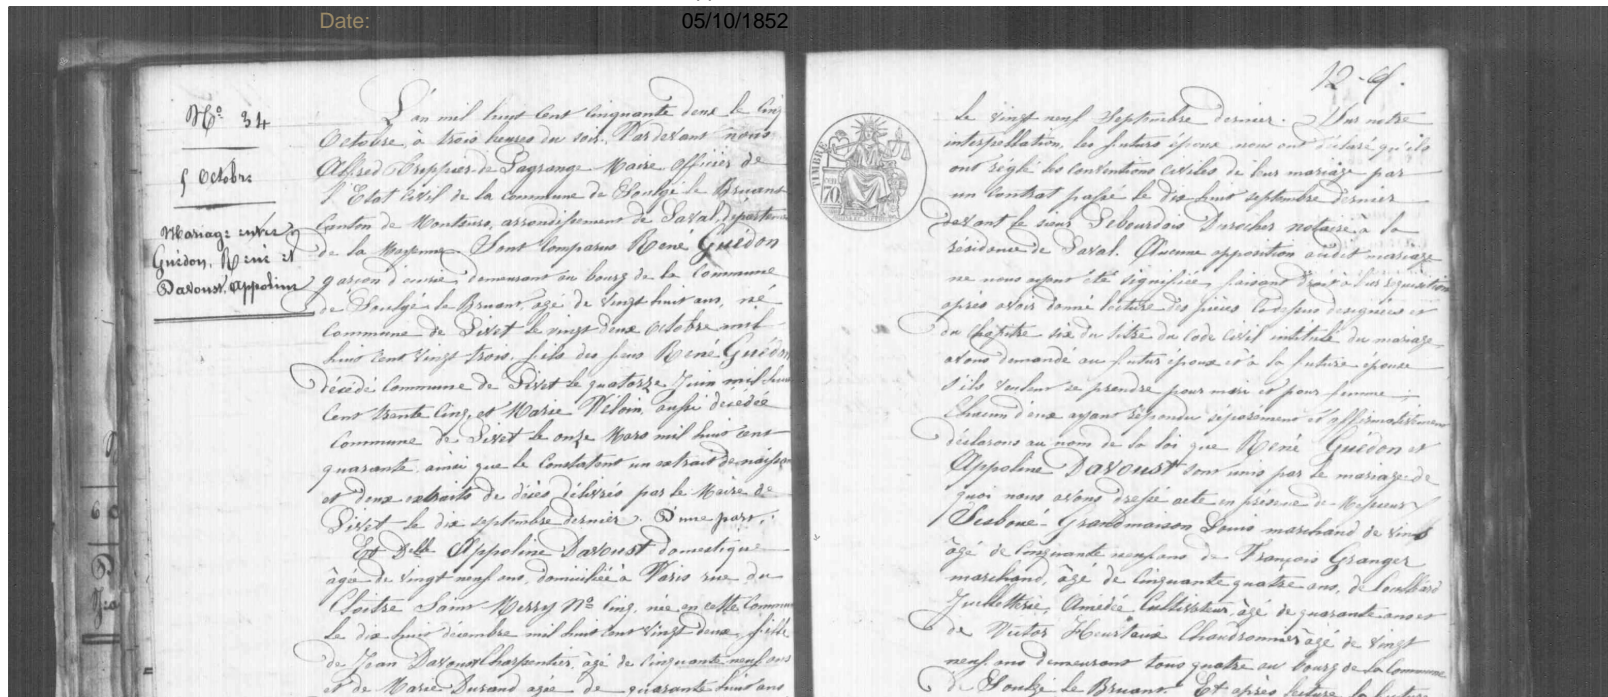 Date: 05/10/1852
N.º 34
5 Octobre
Mariage entre
Guédon, René et
Davoust, Appoline
L'an mil huit cent cinquante deux le cinq
Octobre, à trois heures du soir. Pardevant nous
Alfred Frippier de Lagrange Maire Officier de
l'Etat civil de la commune de Soulgé le Bruant
Canton de Montsurs, arrondissement de Laval, départem
de la Mayenne. Sont comparus René Guédon
garçon d'écurie, demeurant au bourg de la Commune
de Soulgé le Bruant, agé de vingt huit ans, né
Commune de Livet le vingt deux octobre mil
huit cent vingt trois, fils des feus René Guédon
décédé Commune de Livet le quatorze Juin mil huit
cent trente cinq, et Marie Veloin, aussi décédée
Commune de Livet le onze Mars mil huit cent
quarante, ainsi que le constatent un extrait de naissan
et deux extraits de décès délivrés par le Maire de
Livet le dix septembre dernier. D'une part.
Et Delle Appoline Davoust domestique
âgée de vingt neuf ans, domiciliée à Paris rue du
Cloitre Saint Merry Nº cinq, née en cette Commun
le dix huit décembre mil huit cent vingt deux, fille
de Jean Davoust Charpentier, âgé de cinquante neuf ans
et de Marie Durand agée de quarante huit ans
12
le vingt neuf Septembre dernier. Sur notre
interpellation, les futurs époux nous ont déclaré qu'ils
ont réglé les conventions civiles de leur mariage par
un contrat passé le dix huit septembre dernier
devant le sieur Lebourdais Durocher notaire, à la
résidence de Laval. Aucune opposition audit mariage
ne nous ayant été signifiée, faisant droit à leur réquisition
après avoir donné lecture des pièces ci-dessus désignées et
du chapitre six du titre du code civil intitulé du mariage
avons demandé au futur époux et à la future épouse
s'ils veulent se prendre pour mari et pour femme,
Chacun d'eux ayant répondu séparément et affirmativement
déclarons au nom de la loi que René Guédon et
Appoline Davoust sont unis par le mariage de
quoi nous avons dressé acte en présence de Messieurs
Grandmaison Louis marchand de vins
âgé de cinquante neuf ans de François Granger
marchand, âgé de cinquante quatre ans, de
Amédée Cultivateur âgé de quarante ans et
de Victor Heurtaux Chaudronnier âgé de vingt
neuf ans demeurant tous quatre au bourg de la Commune
de Soulgé le Bruant. Et après lecture
TIMBRE
70